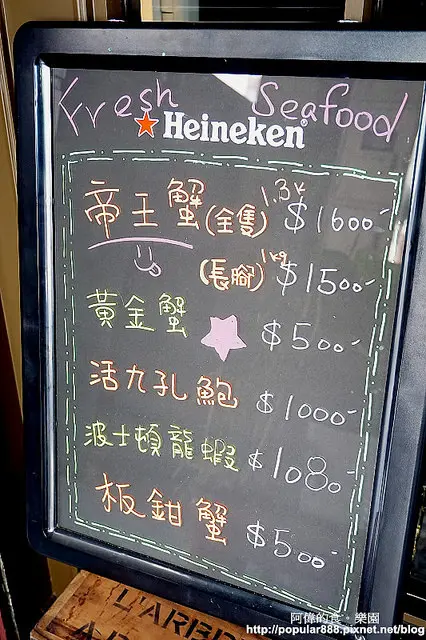 Fresh Seafood
★Heineken®
帝王蟹(全隻) 1.3k $1600-
(長腳) 1kg $1500-
黃金蟹 $500-
活九孔鮑 $1000-
波士頓龍蝦 $1080-
板鉗蟹 $500-
L'ARB
阿偉的食‧樂園
http://popular888.pixnet.net/blog